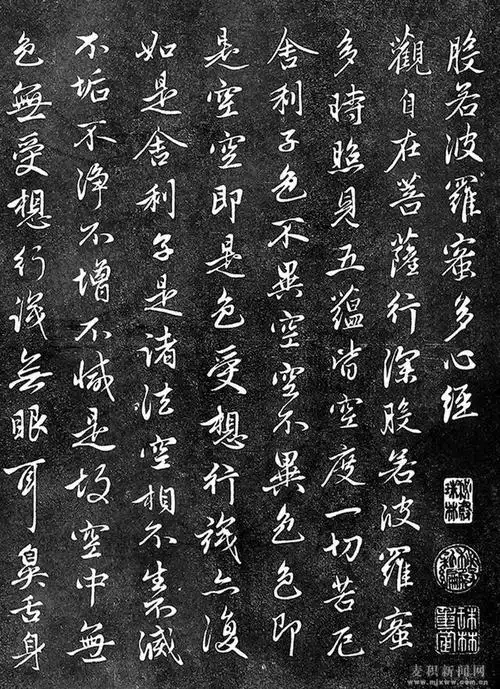 般若波羅蜜多心経
觀自在菩薩行深般若波羅蜜
多時照見五蘊皆空度一切苦厄
舍利子色不異空空不異色色即
是空空即是色受想行識亦復
如是舍利子是諸法空相不生不滅
不垢不淨不增不減是故空中無
色無受想行識無眼耳鼻舌身
麦积新闻网
www.mjxww.com